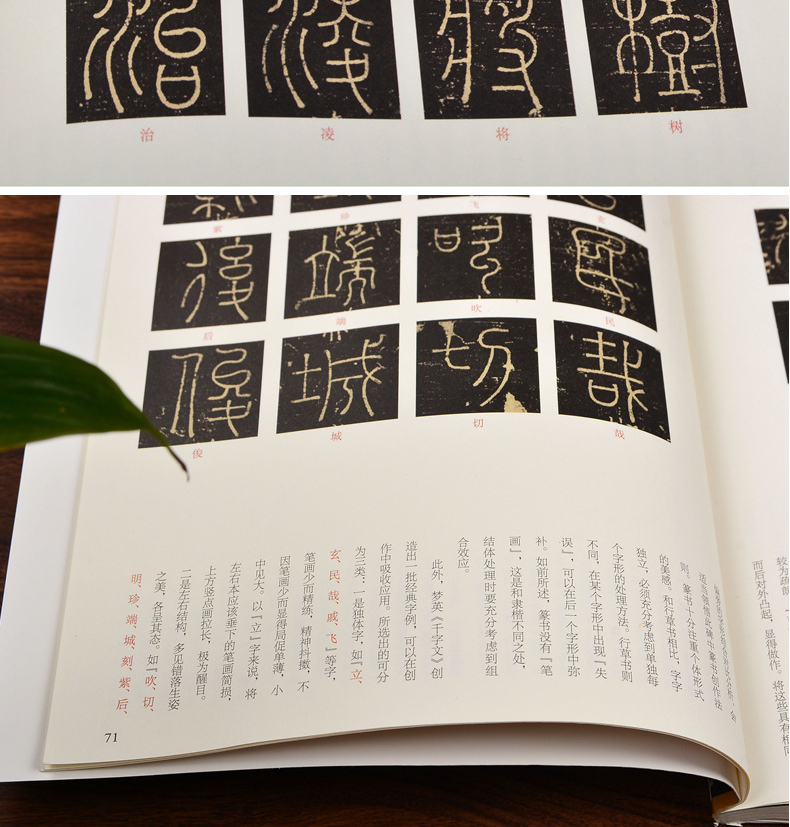 治 凌 将 树
紫 珍 飞 玄
后 端 吹 民
俊 城 切 哉
较为疏朗
而后对外凸起，显得做作。将这些具有相同
适当领悟此碑中篆书创作法
则。篆书十分注重个体形式
的美感。和行草书相比，字字
独立，必须充分考虑到单独每
个字形的处理方法。行草书则
不同，在某个字形中出现『失
误』，可以在后一个字形中弥
补。如前所述，篆书没有『笔
画』，这是和隶楷不同之处，
结体处理时要充分考虑到组
合效应。
此外，梦英《千字文》创
造出一批经典字例，可以在创
作中吸收应用。所选出的可分
为三类：一是独体字，如『立、
玄、民、哉、戚、飞』等字，
笔画少而精练，精神抖擞，不
因笔画少而显得局促单薄，小
中见大。以『立』字来说，将
左右本应该垂下的笔画简损，
上方竖点画拉长，极为醒目。
二是左右结构，多见错落生姿
之美，各呈其态。如『吹、切、
明、珍、端、城、刻、紫、后、
71